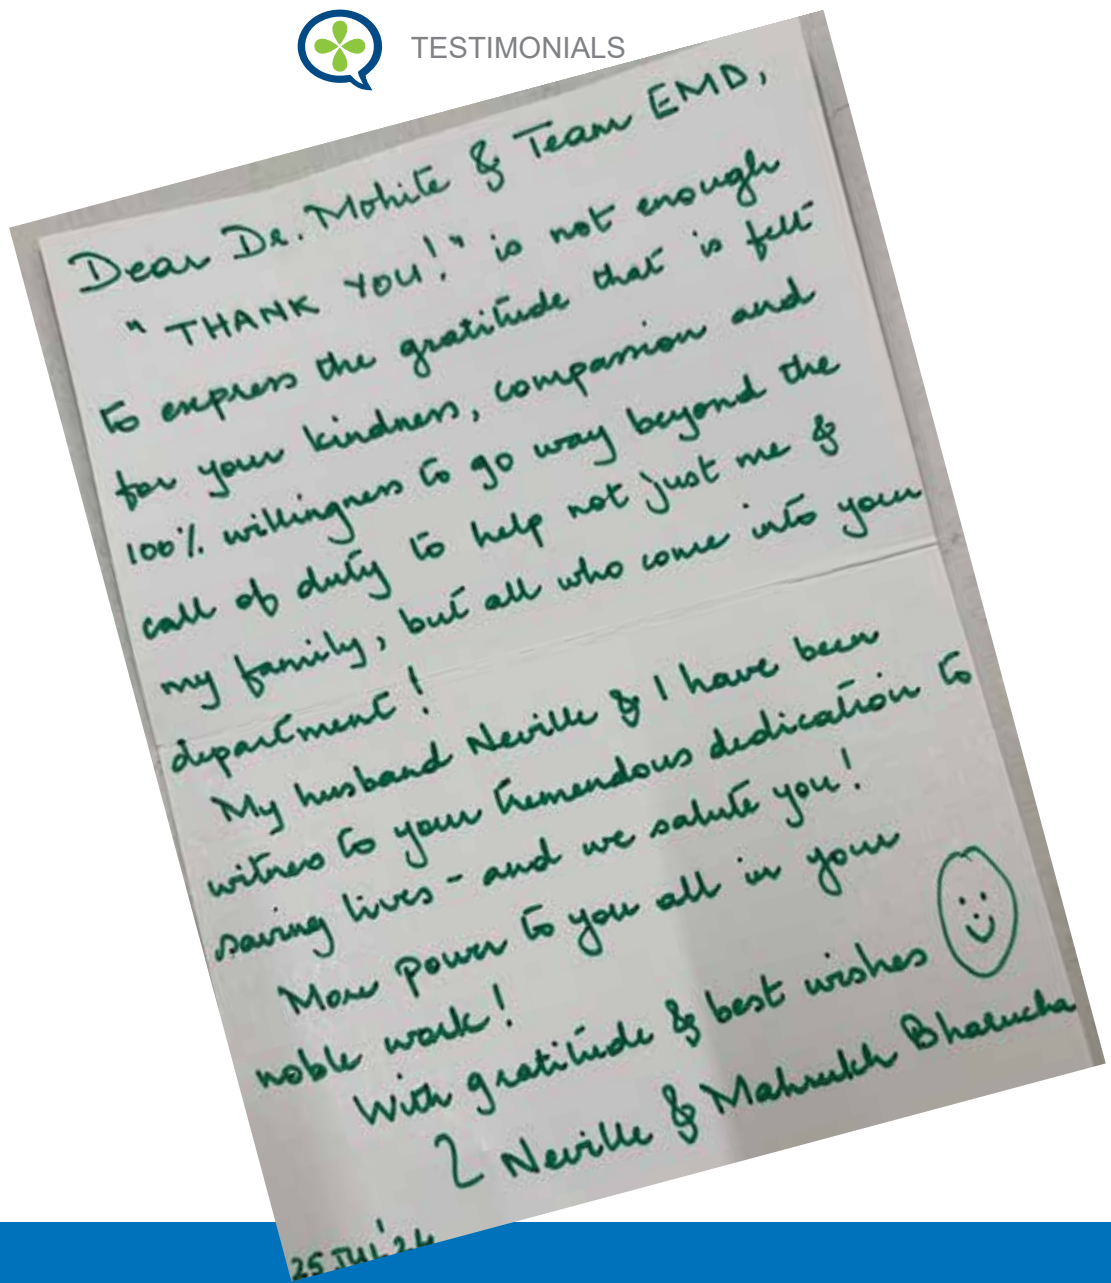 TESTIMONIALS
Dear Dr. Mohite & Team EMD,
"THANK YOU!" is not enough
to express the gratitude that is felt
for your kindness, compassion and
100% willingness to go way beyond the
call of duty to help not just me &
my family, but all who come into your
department!
My husband Neville & I have been
witness to your tremendous dedication to
saving lives - and we salute you!
More power to you all in your
noble work!
With gratitude & best wishes
Neville & Mahrukh Bharucha
25 JUL'24